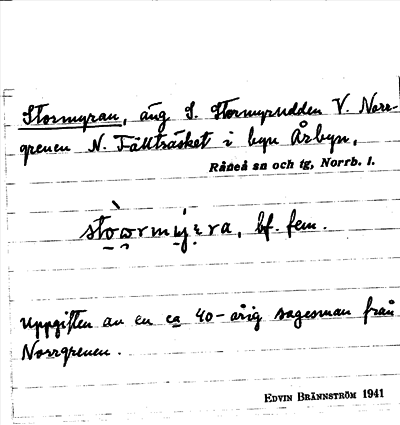 Stormyran, äng S. Stormyrudden V. Norr-
grenen N. Fällträsket i byn Årbyn,
Råneå sn och tg, Norrb. l.
bf. fem.
Uppgiften av en ca 40-årig sagesman från
Norrgrenen.
EDVIN BRÄNNSTRÖM 1941